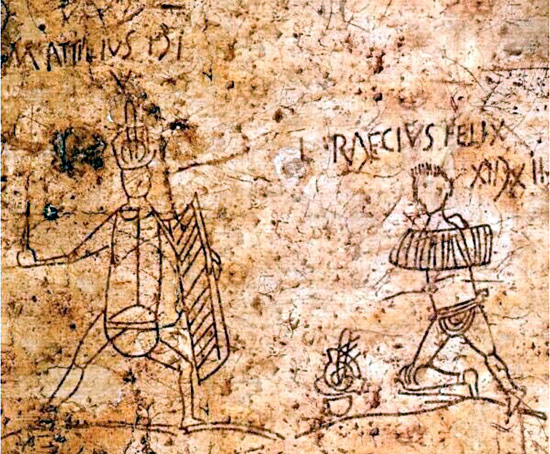 M·ATTILIUS IƆI
L·RAECIVS FELIX
XIIƆXII